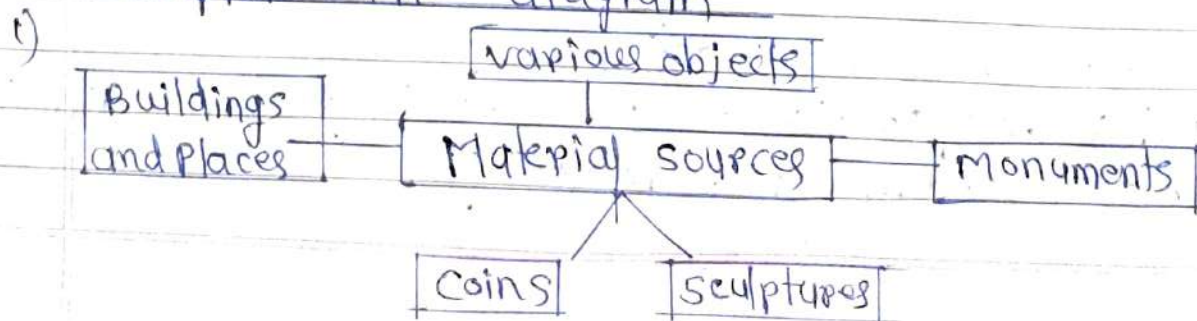 diagram
1)
various objects
Buildings
and places
Material sources
Monuments
coins
sculptures